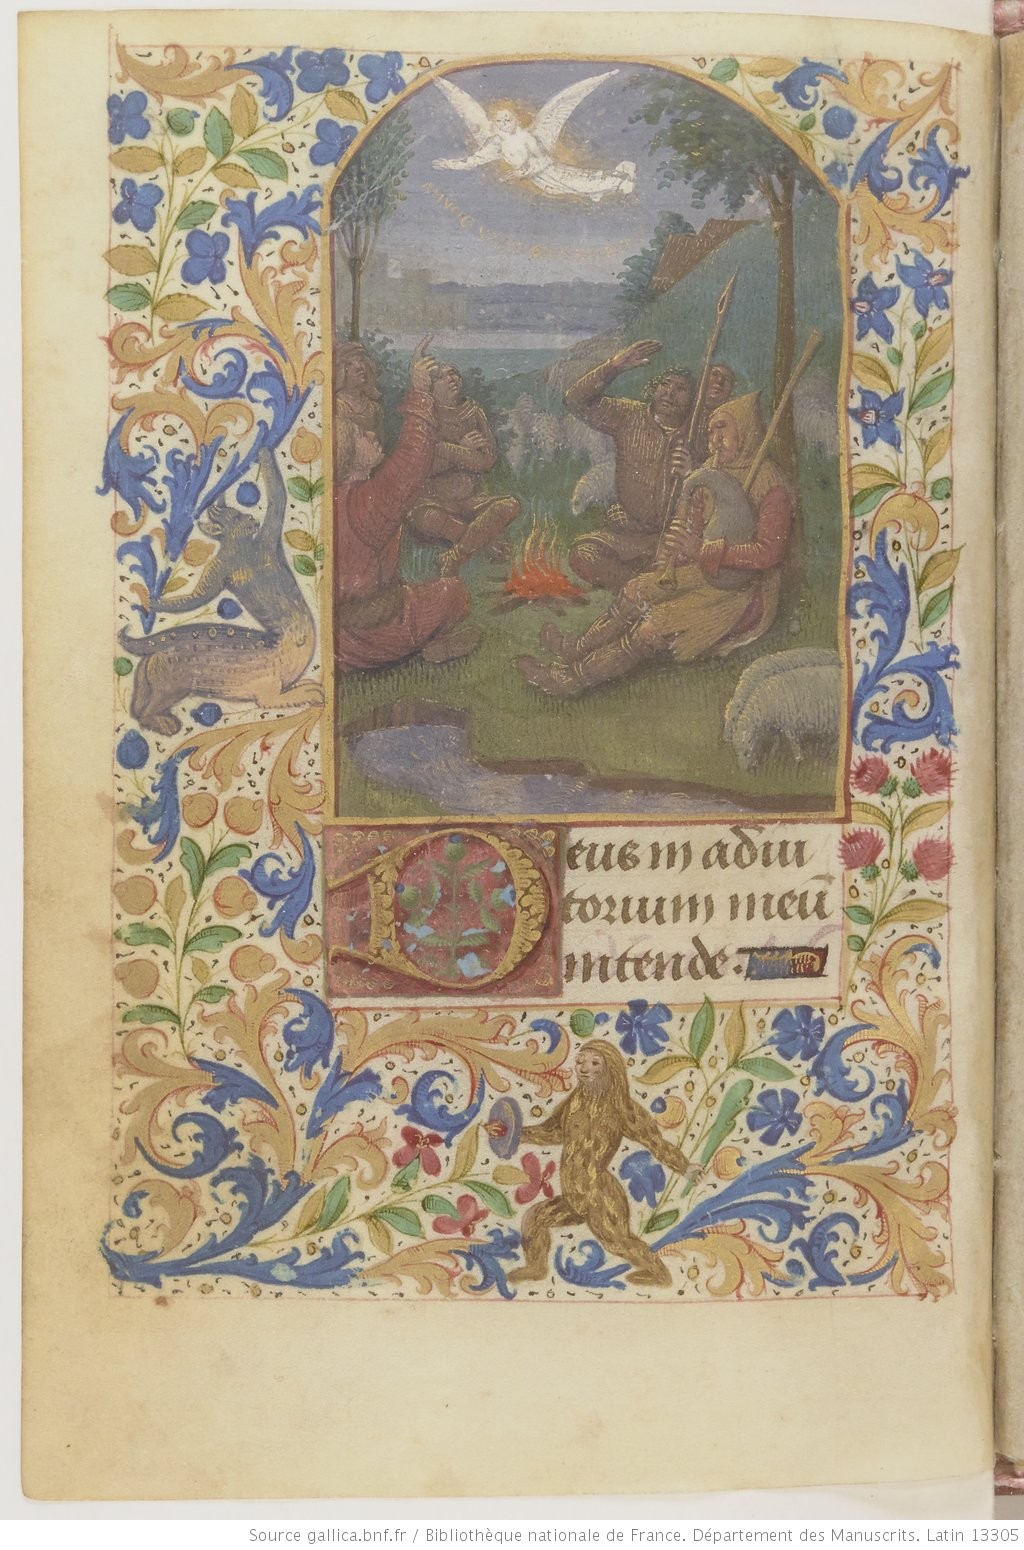 Deus in adiu
torium meū
intende.
Source gallica.bnf.fr / Bibliothèque nationale de France. Département des Manuscrits. Latin 13305